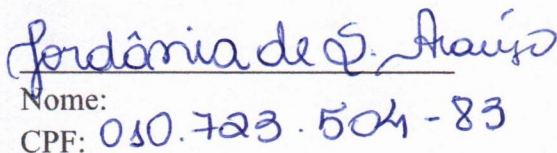 Jordânia de S. Araújo
Nome:
CPF: 010.723.504-83